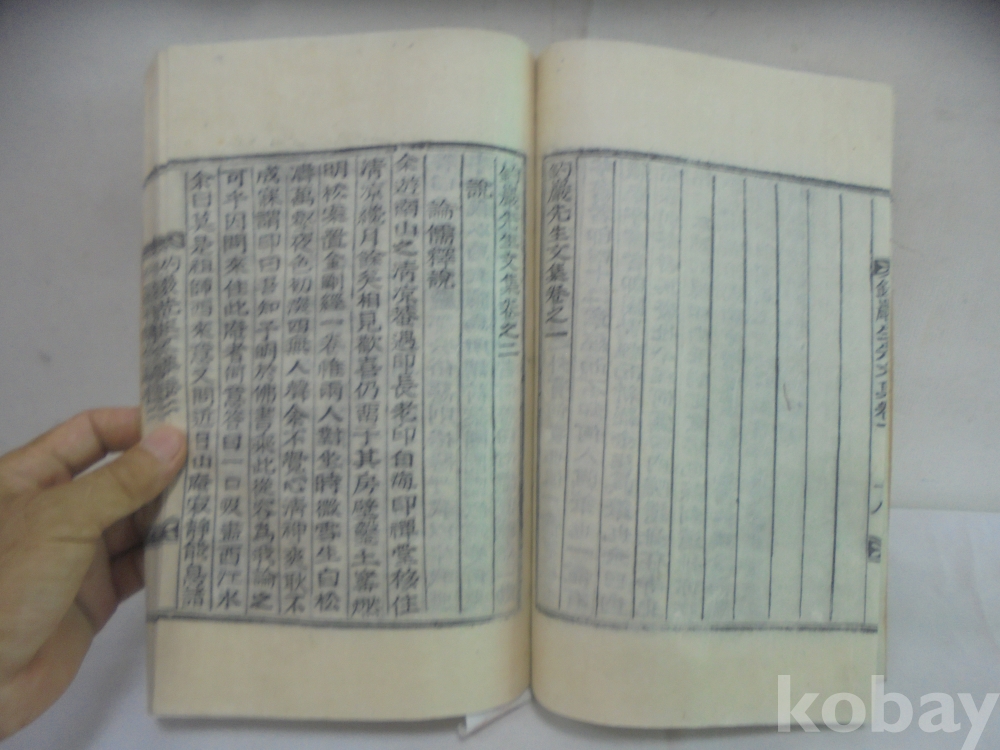 釣巖先生文集卷之一
釣巖先生文集卷之二
說
論儒釋說
余游南山之淸凉菴遇印長老印自海印禪堂移住
淸凉纔月餘矣相見歡喜仍留于其房壁龕土窓燃
明松案置金剛經一卷惟兩人對坐時微雪生白松
濤萬壑夜色初濃四無人聲余不覺心淸神爽耿不
成寐謂印曰吾知子明於佛書來此從容爲我論之
可乎因問來住此庵者何意答曰一口吸盡西江水
余曰莫是祖師西來意又問近日山庵寂靜能
kobay